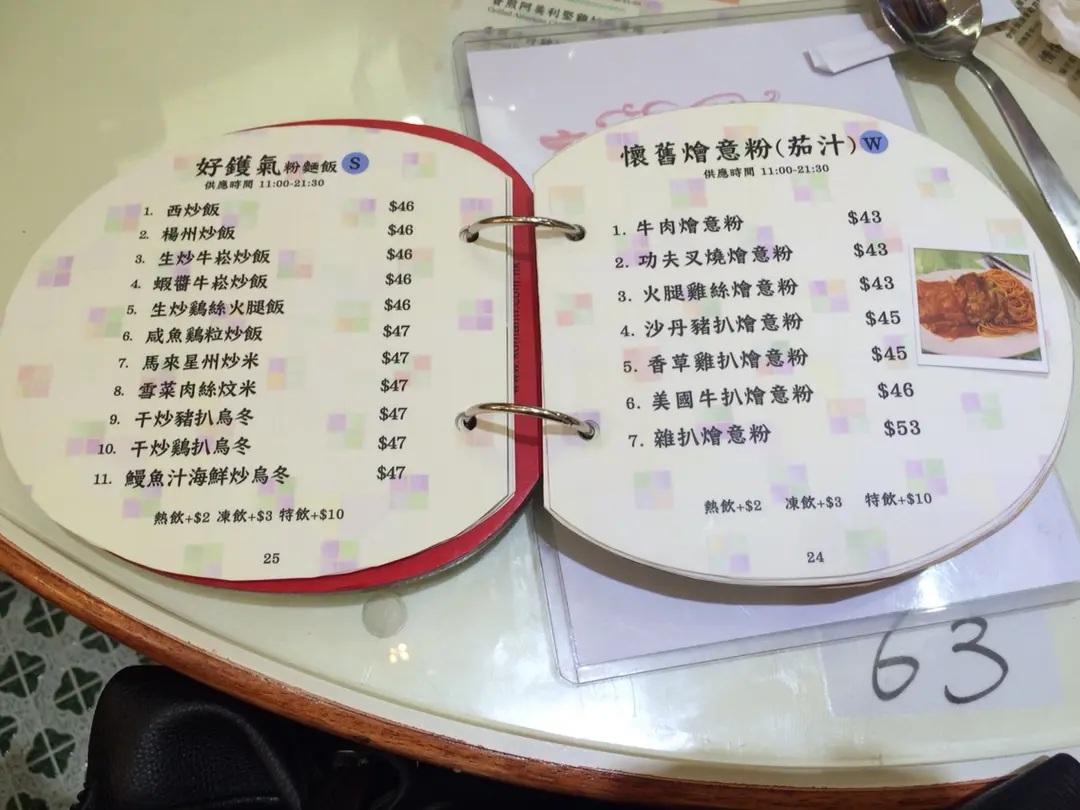 好鑊氣粉麵飯 S
供應時間 11:00-21:30
1. 西炒飯 $46
2. 楊州炒飯 $46
3. 生炒牛崧炒飯 $46
4. 蝦醬牛崧炒飯 $46
5. 生炒鷄絲火腿飯 $46
6. 咸魚鷄粒炒飯 $47
7. 馬來星州炒米 $47
8. 雪菜肉絲炆米 $47
9. 干炒豬扒烏冬 $47
10. 干炒鷄扒烏冬 $47
11. 鰻魚汁海鮮炒烏冬 $47
熱飲+$2 凍飲+$3 特飲+$10
25
懷舊燴意粉(茄汁) W
供應時間 11:00-21:30
1. 牛肉燴意粉 $43
2. 功夫叉燒燴意粉 $43
3. 火腿雞絲燴意粉 $43
4. 沙丹豬扒燴意粉 $45
5. 香草雞扒燴意粉 $45
6. 美國牛扒燴意粉 $46
7. 雜扒燴意粉 $53
熱飲+$2 凍飲+$3 特飲+$10
24
63